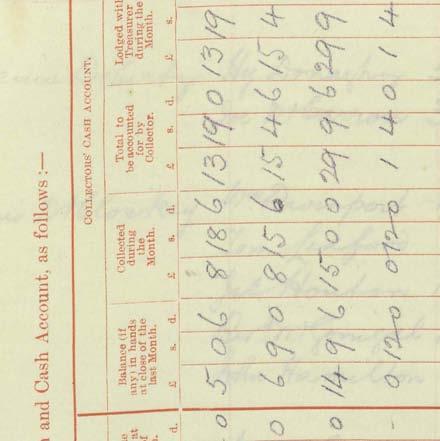 and Cash Account, as follows :—
COLLECTORS' CASH ACCOUNT.
Balance (if
any) in hands
at close of the
last Month.
Collected
during
the
Month.
Total to
be accounted
for by
Collector.
Lodged with
Treasurer
during the
Month.
d. £ s. d. £ s. d. £ s. d. £ s.
0 5 0 6 8 18 6 13 19 0 13 19
0 6 9 0 8 15 6 15 4 6 15 4
0 14 9 6 15 0 0 29 9 6 29 9
- 0 12 0 0 12 0 1 4 0 1 4